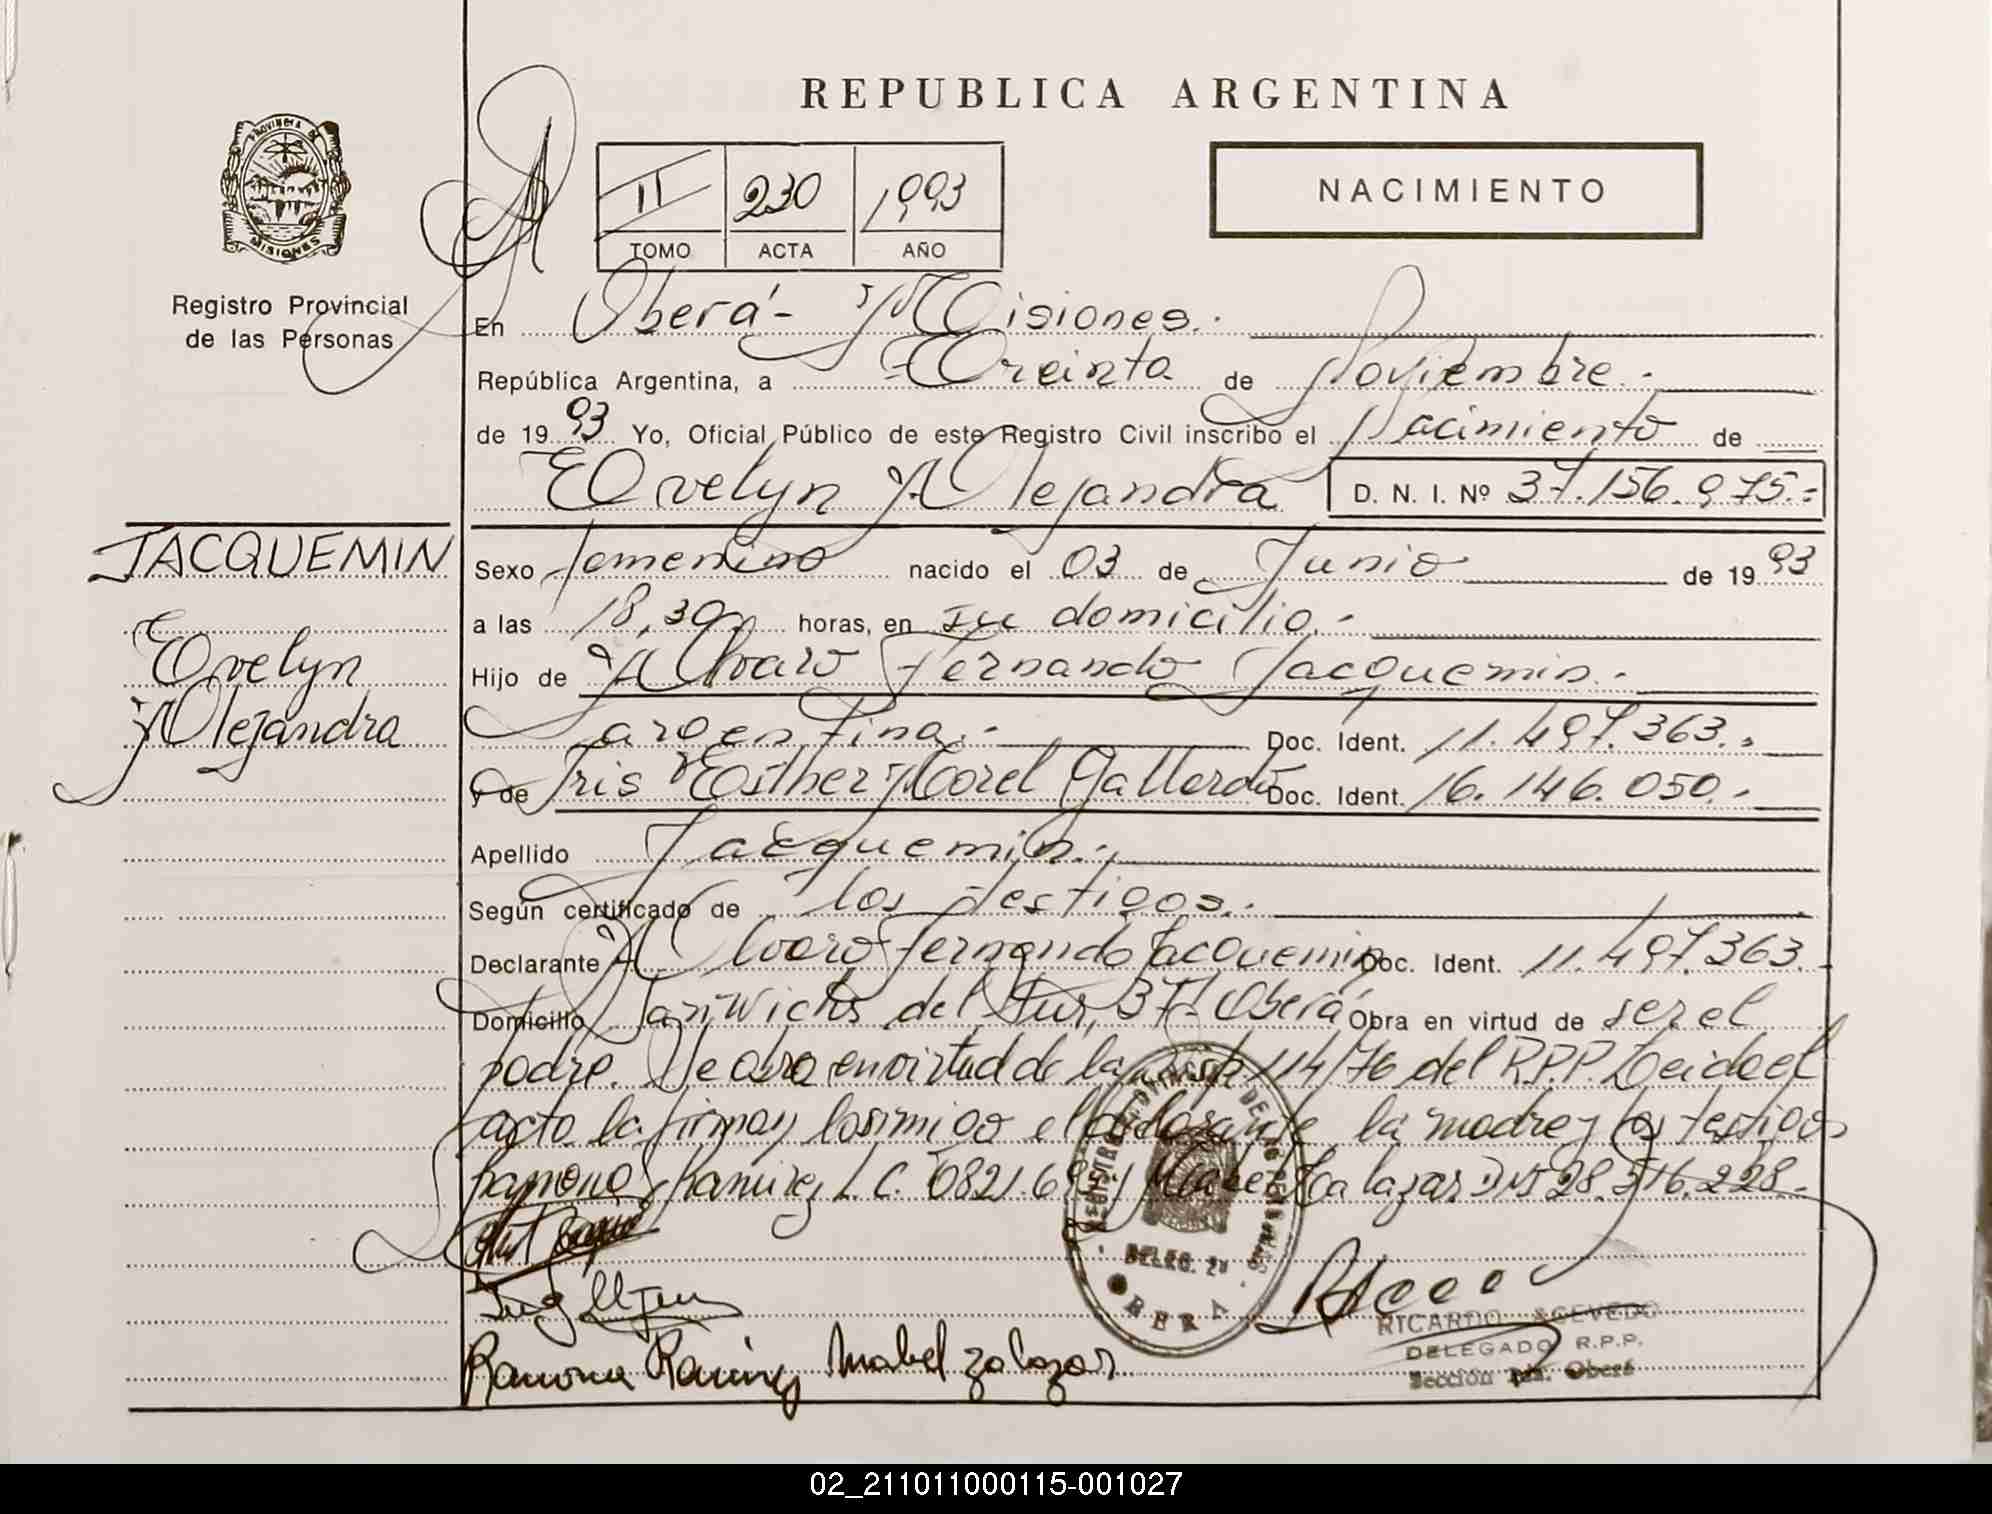 REPUBLICA ARGENTINA
PROVINCIA DE
MISIONES
Registro Provincial
de las Personas
II 230 1993
TOMO ACTA AÑO
NACIMIENTO
En Oberá - Misiones.-
República Argentina, a Treinta de Noviembre.-
de 1993 Yo, Oficial Público de este Registro Civil inscribo el Nacimiento de
Evelyn Alejandra D. N. I. Nº 37.156.975.-
JACQUEMIN
Evelyn
Alejandra
Sexo femenino nacido el 03 de Junio de 1993
a las 18,30 horas, en su domicilio.-
Hijo de Alvaro Fernando Jacquemin.-
argentina.- Doc. Ident. 11.497.363.-
y de Iris Esther Morel Gallardo Doc. Ident. 16.146.050.-
Apellido Jacquemin.-
Según certificado de los testigos.-
Declarante Alvaro Fernando Jacquemin Doc. Ident. 11.497.363.-
Domicilio del Sur 37 - Oberá Obra en virtud de ser el
padre. Se obra en virtud de la 114/76 del R.P.P. Leida el
acta la firman conmigo el declarante, la madre y los testigos
Ramona Ramirez L.C. y Mabel Zalazar DNI 28.316.228.-
DELEG. 2ª
OBERA
RICARDO ACEVEDO
DELEGADO R.P.P.
Sección Oberá
Ramona Ramirez Mabel Zalazar
02_211011000115-001027